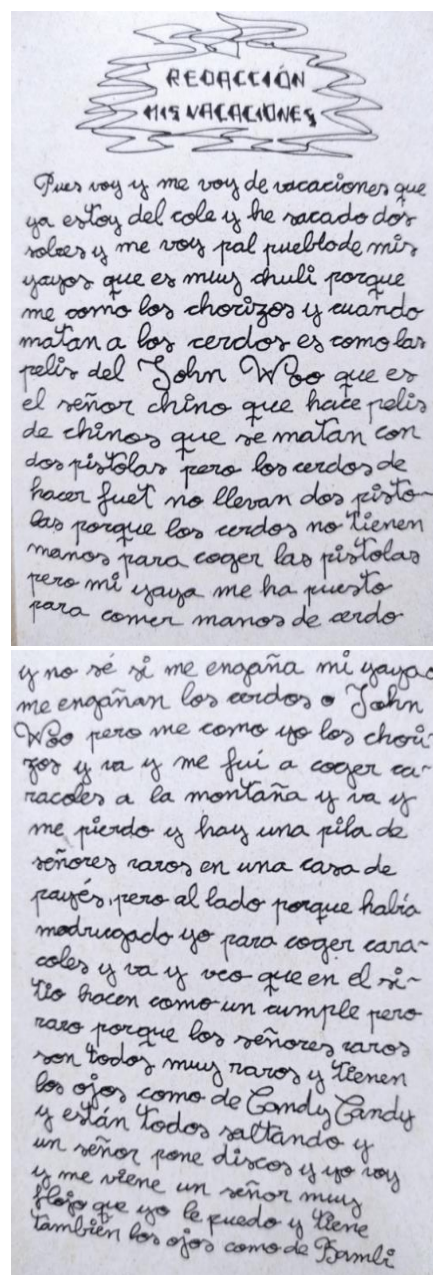 REDACCIÓN
MIS VACACIONES
Pues voy y me voy de vacaciones que
ya estoy del cole y he sacado dos
soles y me voy pal pueblo de mis
yayos que es muy chuli porque
me como los chorizos y cuando
matan a los cerdos es como las
pelis del John Woo que es
el señor chino que hace pelis
de chinos que se matan con
dos pistolas pero los cerdos de
hacer fuet no llevan dos pisto-
las porque los cerdos no tienen
manos para coger las pistolas
pero mi yaya me ha puesto
para comer manos de cerdo
y no sé si me engaña mi yaya o
me engañan los cerdos o John
Woo pero me como yo los chori-
zos y va y me fui a coger ca-
racoles a la montaña y va y
me pierdo y hay una pila de
señores raros en una casa de
payés, pero al lado porque había
madrugado yo para coger cara-
coles y va y veo que en el si-
tio hacen como un cumple pero
raro porque los señores raros
son todos muy raros y tienen
los ojos como de Candy Candy
y están todos saltando y
un señor pone discos y yo voy
y me viene un señor muy
flojo que yo le puedo y tiene
también los ojos como de Bambi